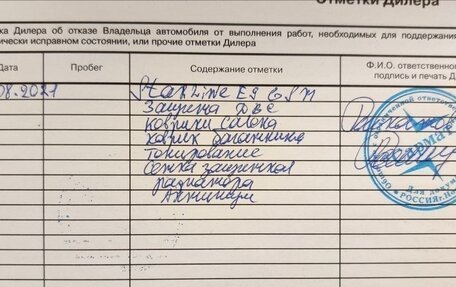 Отметки Дилера
ка Дилера об отказе Владельца автомобиля от выполнения работ, необходимых для поддержания
ически исправном состоянии, или прочие отметки Дилера
Дата
Пробег
Содержание отметки
Ф.И.О. ответственног
подпись и печать Д
08.2021
StarLine E9 GSM
Защита ДВС
коврики салона
коврик багажника
тонирование
сетка защитная
радиатора
Антишум
РОССИЯ